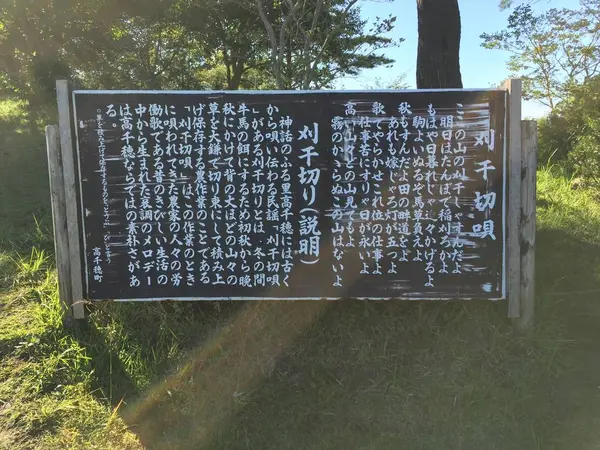 刈干切唄
ここの山の刈干しゃすんだよ
明日はたんぼで稲刈ろかよ
もはや日暮れじゃ迫々かげるよ
駒よいぬるぞ馬草負えよ
秋もすんだよ田の畔道をよ
あれも嫁じゃろ灯が五つよ
歌でうらかせこれ位の仕事よ
仕事苦にすりゃ日が永いよ
高い山々どの山見てもよ
霧のかからぬこの山はないよ
刈干切り(説明)
神話のふる里高千穂には古く
から唄い伝わる民謡「刈干切唄
」がある刈干切りとは、冬の間
牛馬の餌にするため初秋から晩
秋にかけて背の大ほどの山々の
草を大鎌で切り束にして積み上
げ保存する農作業のことである
「刈干切唄」はこの作業のとき
に唄われてきた農家の人々の労
働歌である昔のきびしい生活の
中から生まれた哀調のメロデー
は高千穂ならではの素朴さがあ
る。
高千穂町